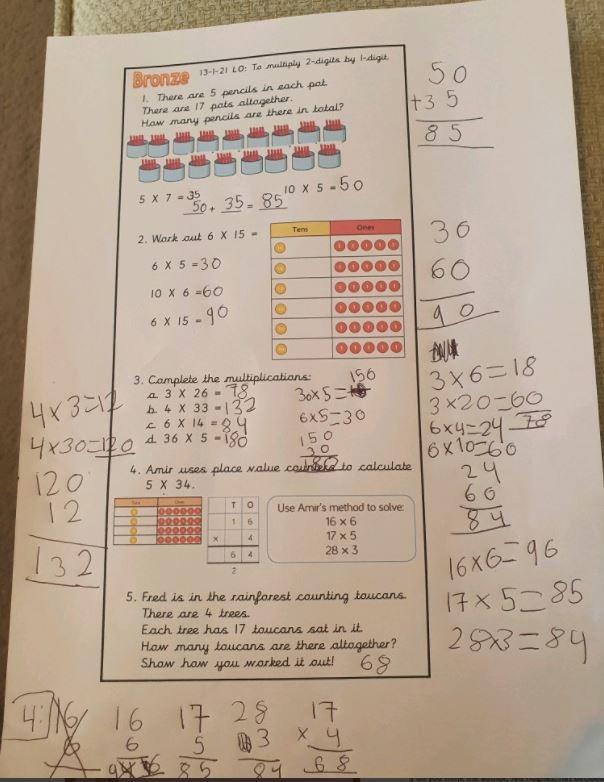 Bronze
13-1-21 LO: To multiply 2-digits by 1-digit
1. There are 5 pencils in each pot.
There are 17 pots altogether.
How many pencils are there in total?
5 X 7 = 35
10 X 5 = 50
50 + 35 = 85
50
+35
85
2. Work out 6 X 15 =
6 X 5 = 30
10 X 6 = 60
6 X 15 = 90
Tens Ones
30
60
90
3. Complete the multiplications:
a. 3 X 26 = 78
b. 4 X 33 = 132
c. 6 X 14 = 84
d. 36 X 5 = 180
150
30x5=
6x5=30
150
30
180
4x3=12
4x30=120
120
12
132
3x6=18
3x20=60
78
6x4=24
6x10=60
24
60
84
4. Amir uses place value counters to calculate
5 X 34.
Tens Ones
T O
1 6
x 4
6 4
2
Use Amir's method to solve:
16 x 6
17 x 5
28 x 3
16x6=96
17x5=85
28x3=84
5. Fred is in the rainforest counting toucans.
There are 4 trees.
Each tree has 17 toucans sat in it.
How many toucans are there altogether?
Show how you worked it out! 68
4:
16
6
16
6
17
5
85
28
3
84
17
x 4
68